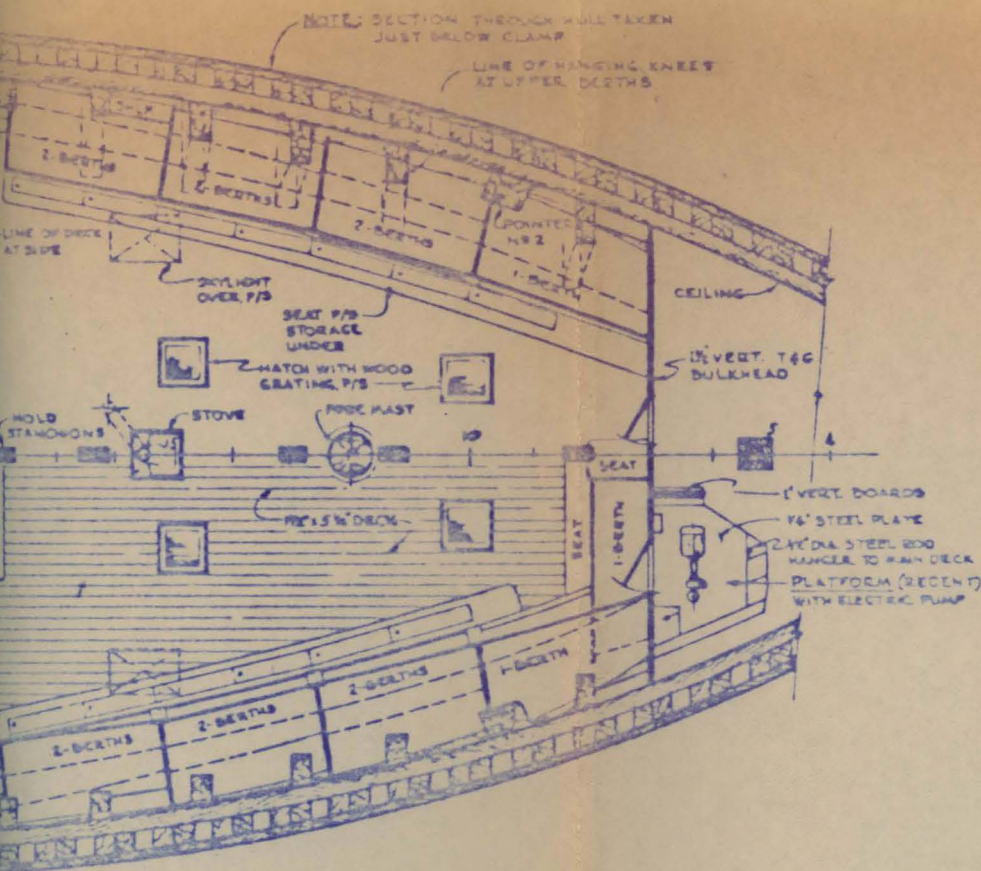 NOTE: SECTION THROUGH HULL TAKEN
JUST BELOW CLAMP
LINE OF HANGING KNEES
AT UPPER BERTHS
2-BERTHS
2-BERTHS
2-BERTHS
1-BERTH
POINTER
NO 2
LINE OF DECK
AT SIDE
SKYLIGHT
OVER, P/S
SEAT P/S
STORAGE
UNDER
CEILING
HATCH WITH WOOD
GRATING, P/S
VERT. T&G
BULKHEAD
HOLD
STANCHIONS
STOVE
FORE MAST
10
5
4
SEAT
DECK
SEAT
1-BERTH
1" VERT. BOARDS
STEEL PLATE
DIA. STEEL ROD
HANGER TO MAIN DECK
PLATFORM (RECENT)
WITH ELECTRIC PUMP
1-BERTH
2-BERTHS
2-BERTHS
2-BERTHS